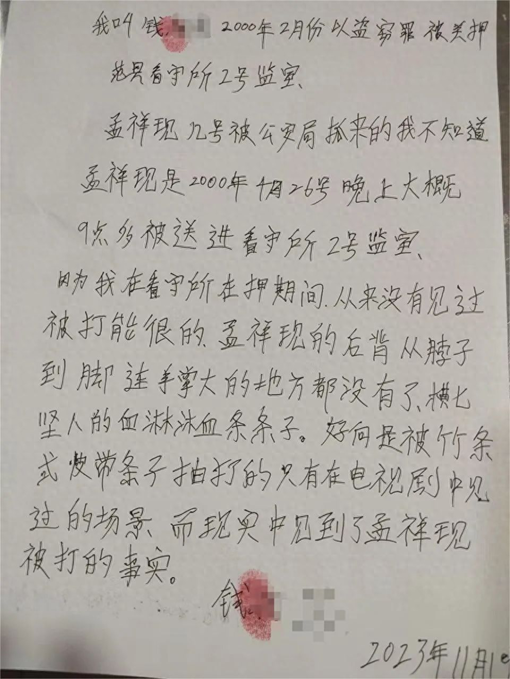 我叫钱 2000年2月份以盗窃罪被关押
范县看守所2号监室、
孟祥现几号被公安局抓来的我不知道
孟祥现是2000年4月26号晚上大概
9点多被送进看守所2号监室、
因为我在看守所在押期间.从来没有见过
被打能很的.孟祥现的后背从脖子
到脚连手掌大的地方都没有了、横七
竖八的血淋淋血条条子。好向是被竹条
或皮带条子抽打的只有在电视剧中见
过的场景.而现实中见到了孟祥现
被打的事实。
钱
2023年11月1